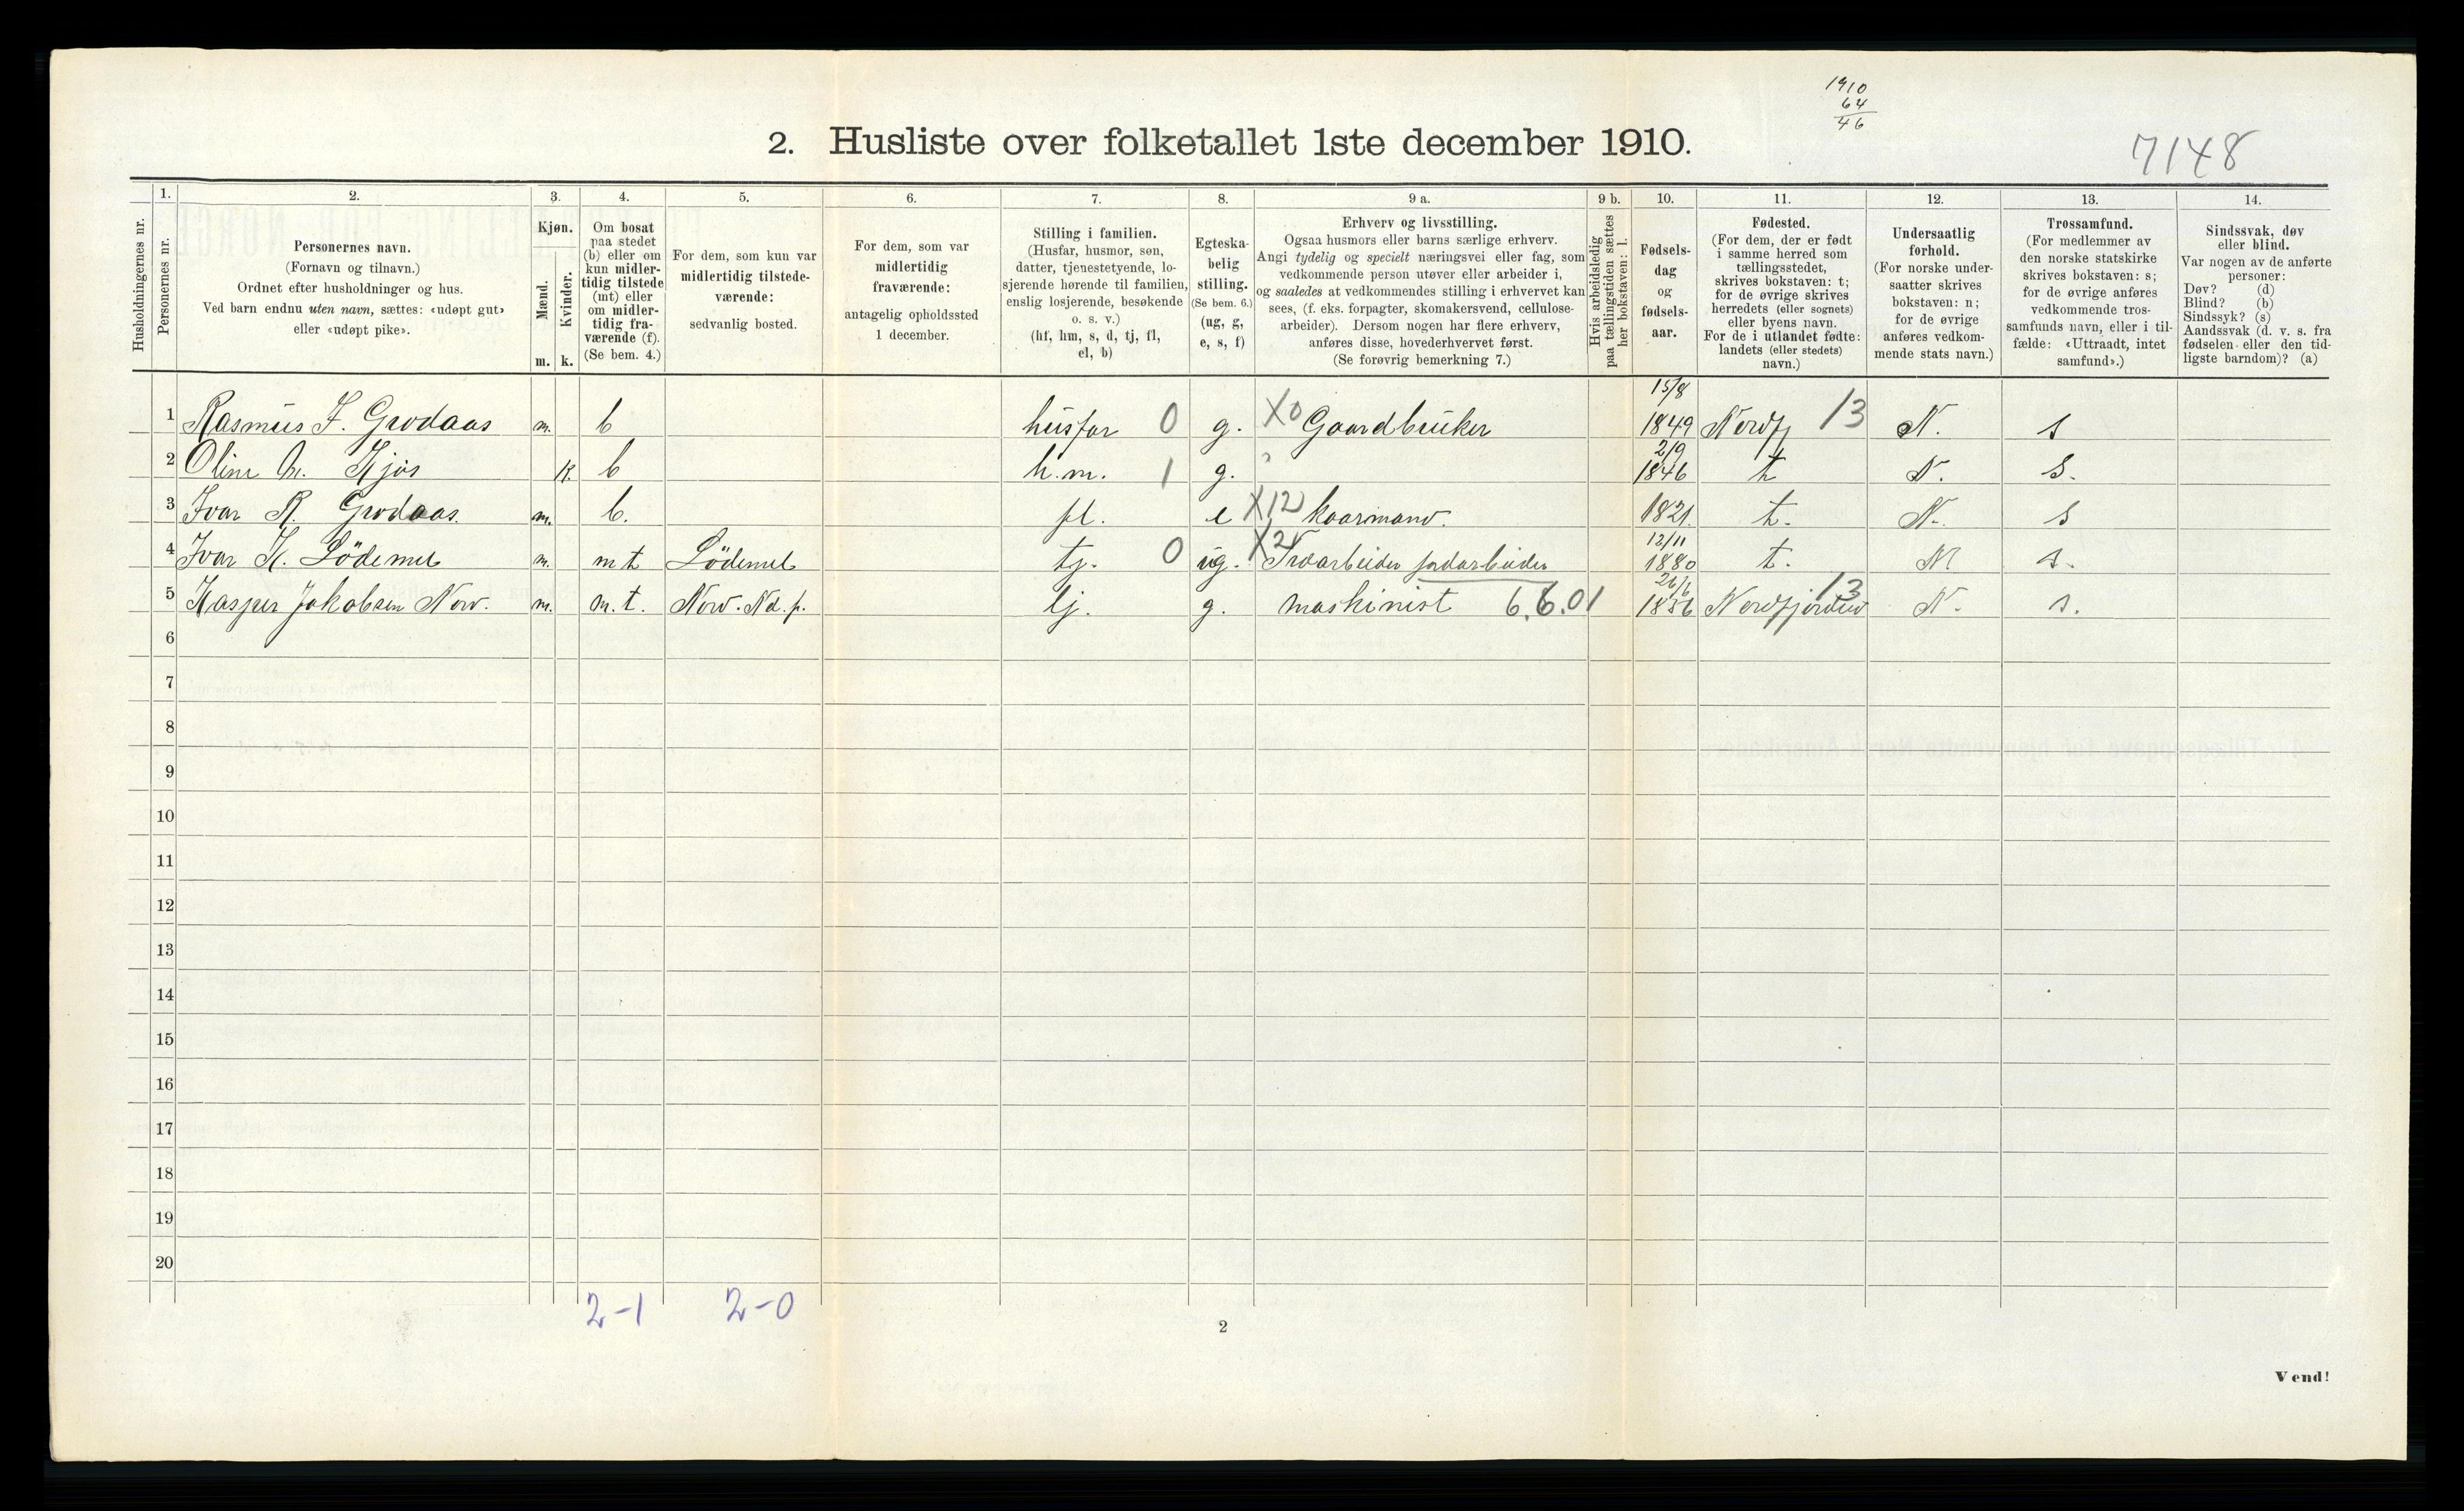 1910
64
46
2. Husliste over folketallet 1ste december 1910.
7148
Husholdningernes nr.
1.
Personernes nr.
2.
Personernes navn.
(Fornavn og tilnavn.)
Ordnet efter husholdninger og hus.
Ved barn endnu uten navn, sættes: «udøpt gut»
eller «udøpt pike».
3.
Kjøn.
Mænd.
Kvinder.
m. k.
4.
Om bosat
paa stedet
(b) eller om
kun midler-
tidig tilstede
(mt) eller
om midler-
tidig fra-
værende (f).
(Se bem. 4.)
5.
For dem, som kun var
midlertidig tilstede-
værende:
sedvanlig bosted.
6.
For dem, som var
midlertidig
fraværende:
antagelig opholdssted
1 december.
7.
Stilling i familien.
(Husfar, husmor, søn,
datter, tjenestetyende, lo-
sjerende hørende til familien,
enslig losjerende, besøkende
o. s. v.)
(hf, hm, s, d, tj, fl,
el, b)
8.
Egteska-
belig
stilling.
(Se bem. 6.)
(ug, g,
e, s, f)
9 a.
Erhverv og livsstilling.
Ogsaa husmors eller barns særlige erhverv.
Angi tydelig og specielt næringsvei eller fag, som
vedkommende person utøver eller arbeider i,
og saaledes at vedkommendes stilling i erhvervet kan
sees, (f. eks. forpagter, skomakersvend, cellulose-
arbeider). Dersom nogen har flere erhverv,
anføres disse, hovederhvervet først.
(Se forøvrig bemerkning 7.)
9 b.
Hvis arbeidsledig
paa tællingstiden sættes
her bokstaven: l.
10.
Fødsels-
dag
og
fødsels-
aar.
11.
Fødested.
(For dem, der er født
i samme herred som
tællingsstedet,
skrives bokstaven: t;
for de øvrige skrives
herredets (eller sognets)
eller byens navn.
For de i utlandet fødte:
landets (eller stedets)
navn.)
12.
Undersaatlig
forhold.
(For norske under-
saatter skrives
bokstaven: n;
for de øvrige
anføres vedkom-
mende stats navn.)
13.
Trossamfund.
(For medlemmer av
den norske statskirke
skrives bokstaven: s;
for de øvrige anføres
vedkommende tros-
samfunds navn, eller i til-
fælde: «Uttraadt, intet
samfund».)
14.
Sindssvak, døv
eller blind.
Var nogen av de anførte
personer:
Døv? (d)
Blind? (b)
Sindssyk? (s)
Aandssvak (d. v. s. fra
fødselen eller den tid-
ligste barndom)? (a)
1 Rasmus I. Grodaas m. b husfar 0 g. X0 Gaardbruker 15/8 1849 Nordfj 13 N. s
2 Oline M. Kjøs k. b h.m. 1 g. 2/9 1846 t N. s.
3 Ivar R. Grodaas. m. b. fl. e X12 kaarmand. 1821. t. N. s
4 Ivar K. Lödemel m. mt Lödemel tj. 0 ug. X2 jordarbeider 12/11 1880 t. N s.
5 Kasper Jakobsen Nor. m. m.t. Nor. Nd.f. lj. g. maskinist 6.6.01 26/6 1856 Nordfjordeid 13 N. s.
6
7
8
9
10
11
12
13
14
15
16
17
18
19
20
2-1 2-0
2
Vend!